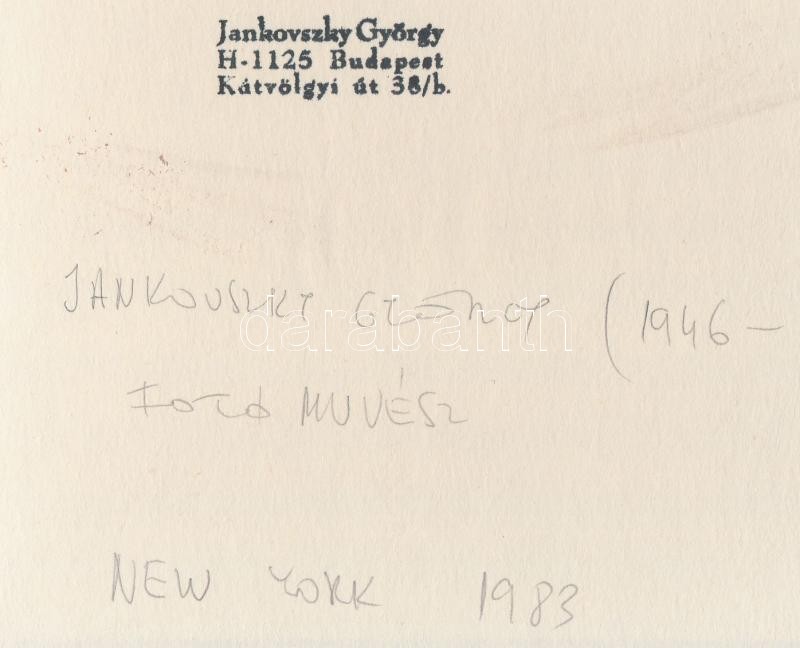 Jankovszky György
H-1125 Budapest
Kátvölgyi út 38/b.
JANKOVSZKY GYÖRGY (1946-
darabanth
FOTÓ MUVÉSZ
NEW YORK 1983